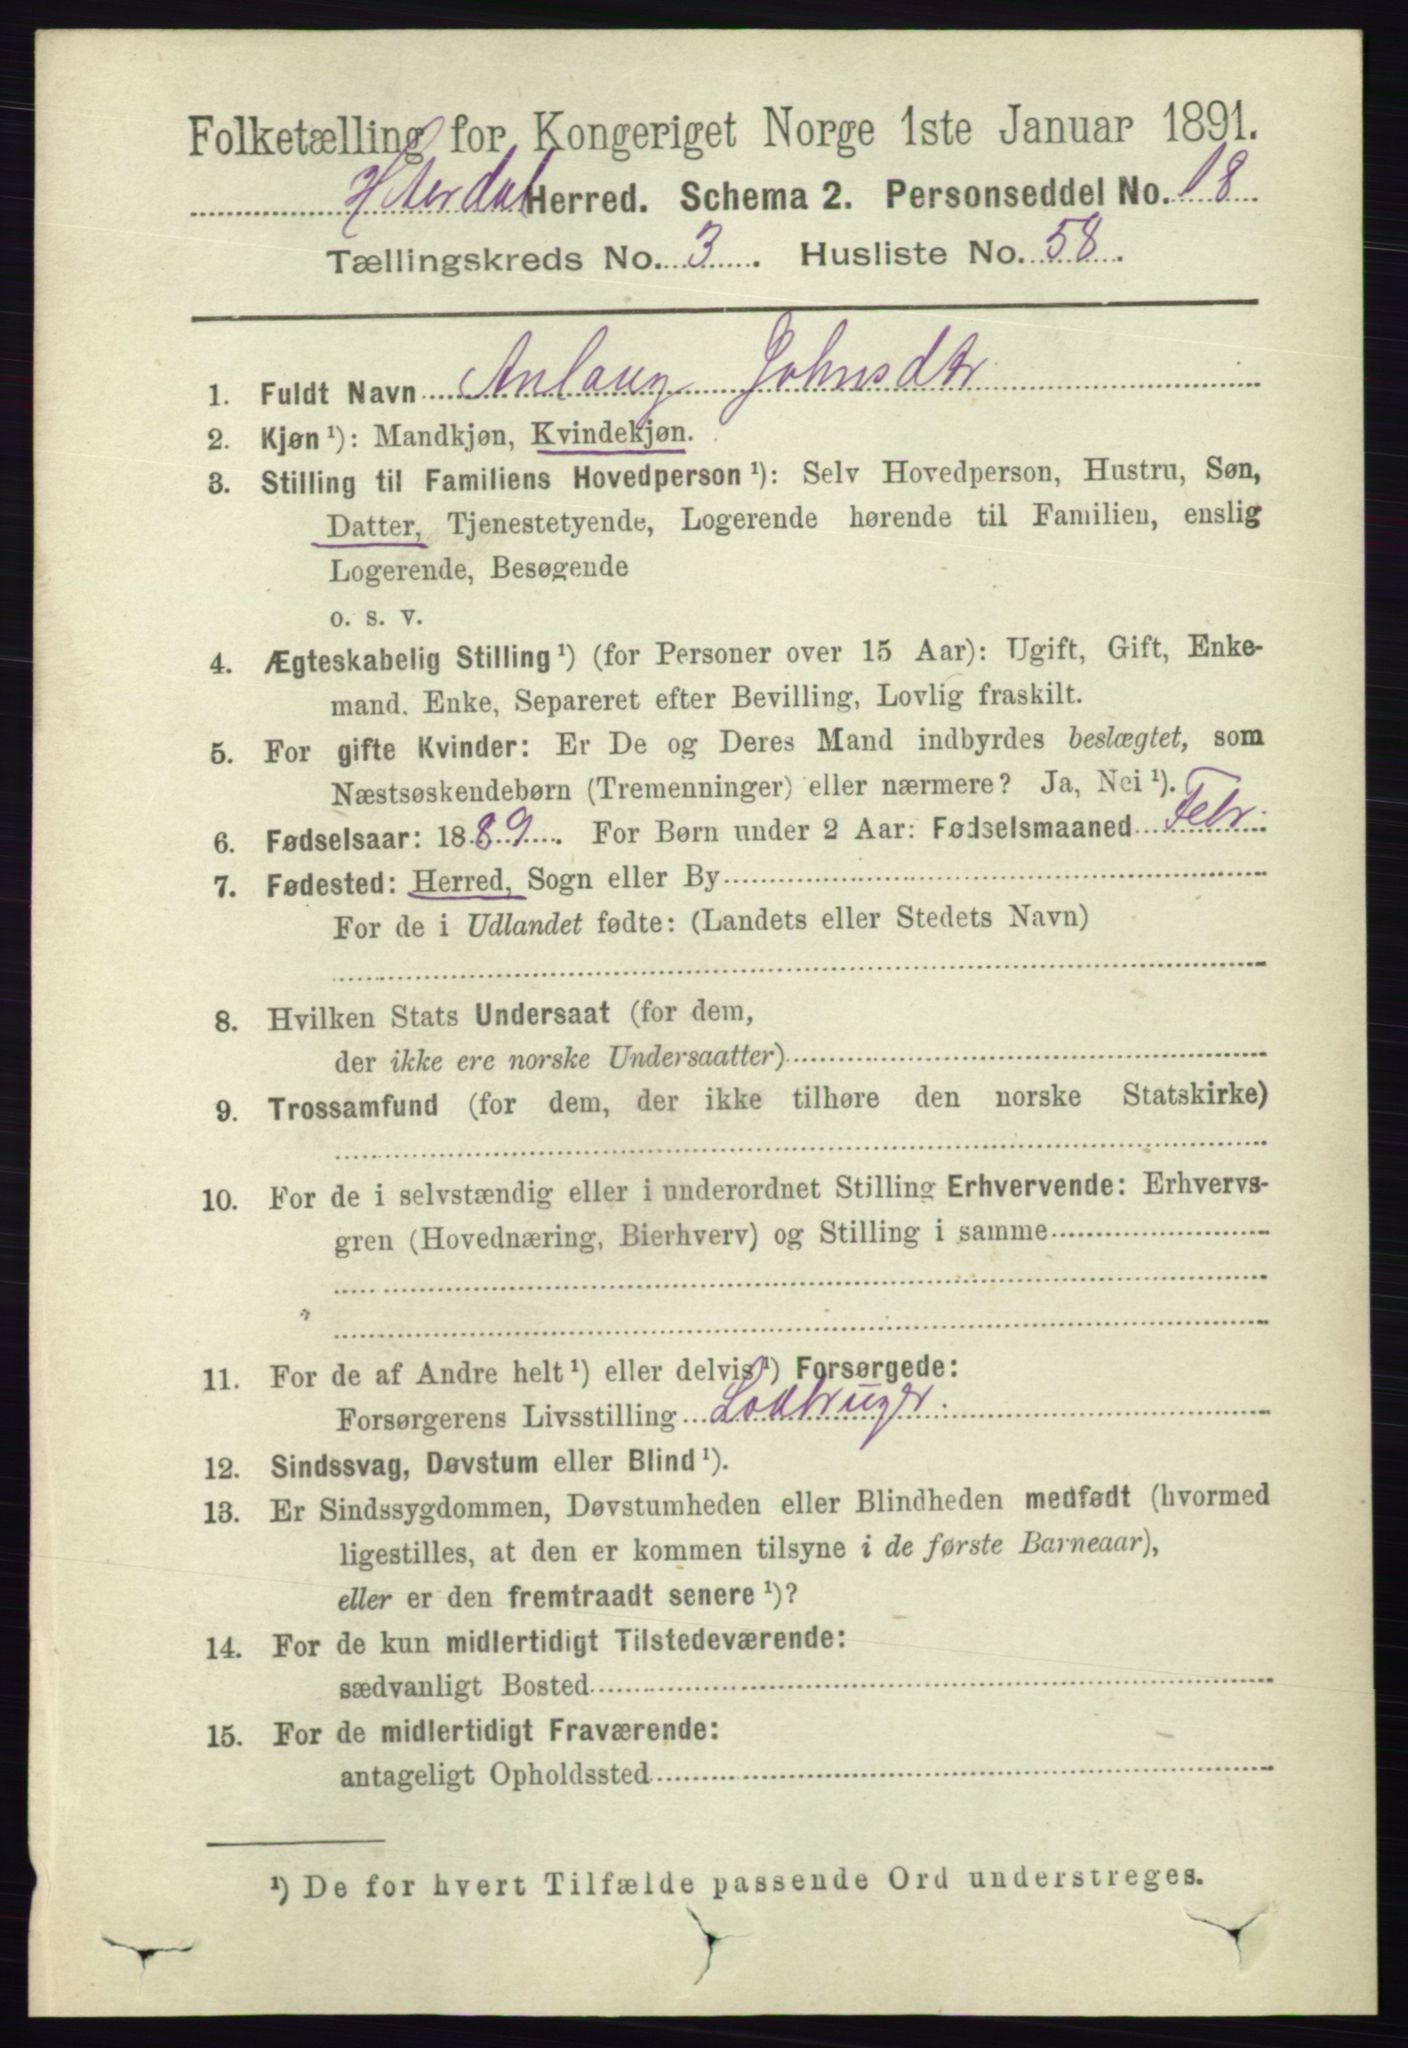 Folketælling for Kongeriget Norge 1ste Januar 1891.
Hiterdal Herred. Schema 2. Personseddel No. 18
Tællingskreds No. 3. Husliste No. 58.
1. Fuldt Navn Anlaug Johnsdtr
2. Kjøn ¹): Mandkjøn, Kvindekjøn.
3. Stilling til Familiens Hovedperson ¹): Selv Hovedperson, Hustru, Søn,
Datter, Tjenestetyende, Logerende hørende til Familien, enslig
Logerende, Besøgende
o. s. v.
4. Ægteskabelig Stilling ¹) (for Personer over 15 Aar): Ugift, Gift, Enke-
mand. Enke, Separeret efter Bevilling, Lovlig fraskilt.
5. For gifte Kvinder: Er De og Deres Mand indbyrdes beslægtet, som
Næstsøskendebørn (Tremenninger) eller nærmere? Ja, Nei ¹).
6. Fødselsaar: 1889. For Børn under 2 Aar: Fødselsmaaned Febr.
7. Fødested: Herred, Sogn eller By
For de i Udlandet fødte: (Landets eller Stedets Navn)
8. Hvilken Stats Undersaat (for dem,
der ikke ere norske Undersaatter)
9. Trossamfund (for dem, der ikke tilhøre den norske Statskirke)
10. For de i selvstændig eller i underordnet Stilling Erhvervende: Erhvervs-
gren (Hovednæring, Bierhverv) og Stilling i samme
11. For de af Andre helt ¹) eller delvis ¹) Forsørgede:
Forsørgerens Livsstilling Lodbruger.
12. Sindssvag, Døvstum eller Blind ¹).
13. Er Sindssygdommen, Døvstumheden eller Blindheden medfødt (hvormed
ligestilles, at den er kommen tilsyne i de første Barneaar),
eller er den fremtraadt senere ¹)?
14. For de kun midlertidigt Tilstedeværende:
sædvanligt Bosted
15. For de midlertidigt Fraværende:
antageligt Opholdssted
¹) De for hvert Tilfælde passende Ord understreges.